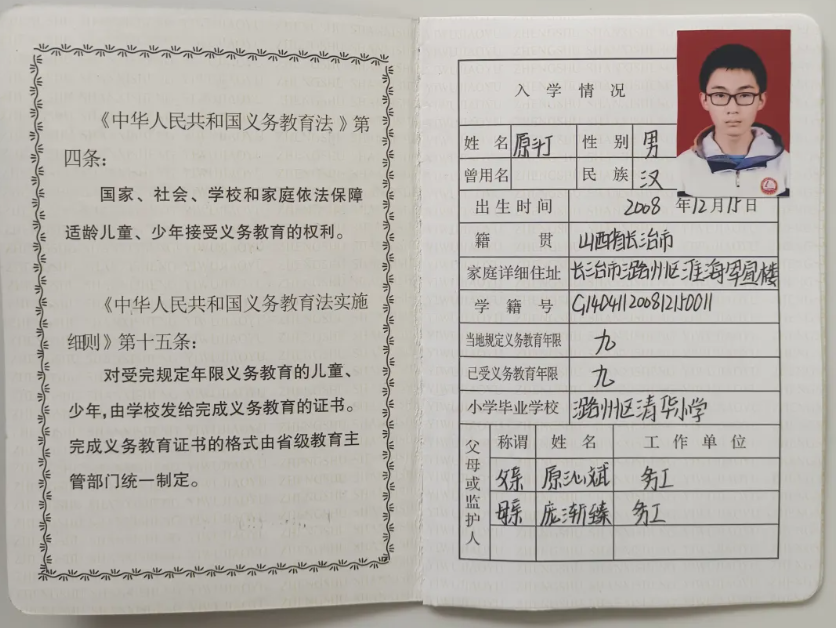 《中华人民共和国义务教育法》第
四条：
国家、社会、学校和家庭依法保障
适龄儿童、少年接受义务教育的权利。
《中华人民共和国义务教育法实施
细则》第十五条：
对受完规定年限义务教育的儿童、
少年，由学校发给完成义务教育的证书。
完成义务教育证书的格式由省级教育主
管部门统一制定。
入学情况
姓名 原 性别 男
曾用名 民族 汉
出生时间 2008年12月15日
籍贯 山西省长治市
家庭详细住址 长治市潞州区淮海军宣楼
学籍号 G140411200812150011
当地规定义务教育年限 九
已受义务教育年限 九
小学毕业学校 潞州区清华小学
父母或监护人
称谓 姓名 工作单位
父亲 原沁斌 务工
母亲 庞渐臻 务工